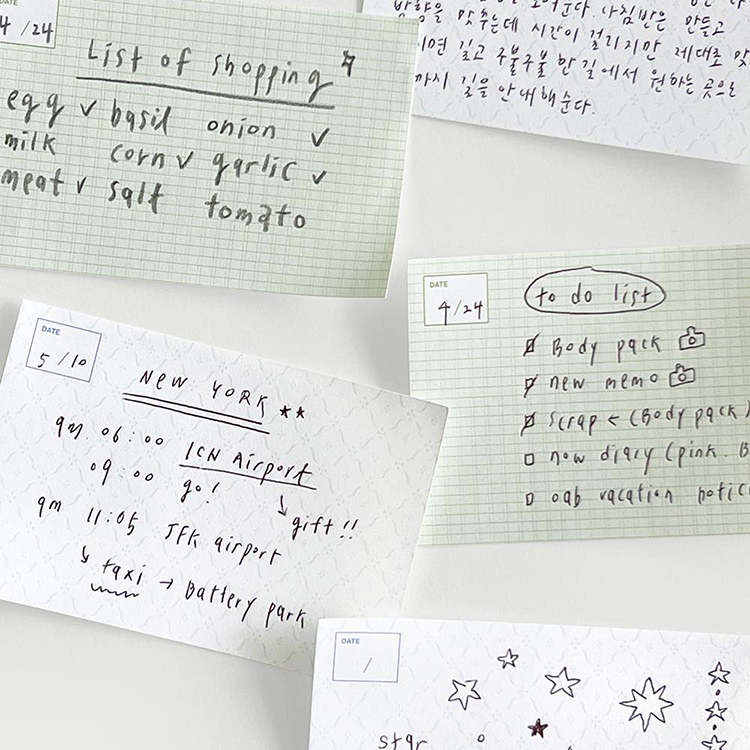 DATE
4/24
List of shopping
egg ✓ basil onion ✓
milk corn ✓ garlic ✓
meat ✓ salt tomato
맞추는데 시간이 걸리지만 제대로
길고 구불구불 한 길에서 원하는 곳으로
까지 길을 안내해 준다.
DATE
4/24
to do list
☑ Body pack
☑ new memo
☑ scrap ← (Body pack)
☐ now diary (pink. B
☐ oab vacation notic
DATE
5/10
NEW YORK ★★
am 06:00 ICN Airport
09:00 go! ↳ gift!!
am 11:05 JFK airport
↳ taxi → Battery park
DATE
/
star